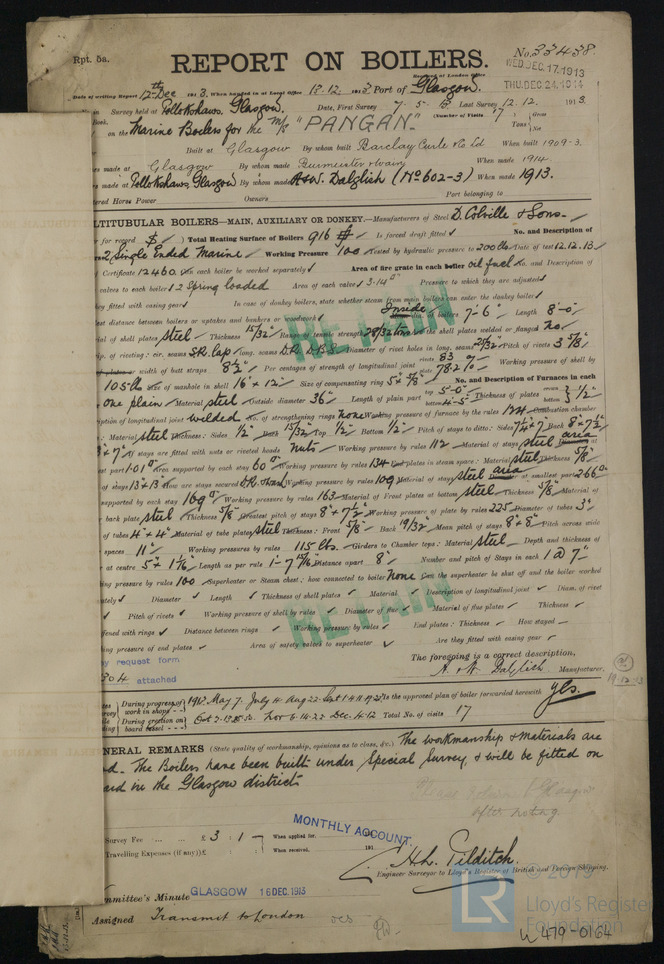 Rpt. 5a.
REPORT ON BOILERS.
No. 33438
Received at London Office WED. DEC. 17. 1913
THU. DEC. 24. 1914
Date of writing Report 12th Dec 1913. When handed in at Local Office 13.12. 1913 Port of Glasgow.
Survey held at Pollokshaws, Glasgow. Date, First Survey 7.5.13 Last Survey 12.12. 1913.
Book. (Number of Visits 17)
on the Marine Boilers for the M/S "PANGAN" Tons Gross Net
Built at Glasgow By whom built Barclay Curle & Co Ld When built 1909-3.
made at Glasgow By whom made Burmeister & Wain When made 1914
made at Pollokshaws, Glasgow By whom made A & W. Dalglish (No 602-3) When made 1913.
Horse Power Owners Port belonging to
MULTITUBULAR BOILERS—MAIN, AUXILIARY OR DONKEY.—Manufacturers of Steel D. Colville & Sons.
for record Total Heating Surface of Boilers 916 Is forced draft fitted No. and Description of
2 Single Ended Marine Working Pressure 100 Tested by hydraulic pressure to 200 lbs Date of test 12.12.13
Certificate 12460 Can each boiler be worked separately Area of fire grate in each boiler oil fuel No. and Description of
valves to each boiler 2 Spring loaded Area of each valve 3.14 Pressure to which they are adjusted
they fitted with easing gear In case of donkey boilers, state whether steam from main boilers can enter the donkey boiler
distance between boilers or uptakes and bunkers or woodwork Inside dia. of boilers 7-6" Length 8-0"
of shell plates steel Thickness 15/32 Range of tensile strength 28/32 tons Are the shell plates welded or flanged no.
of riveting: cir. seams S.R. lap long. seams D.R. D.B.S. Diameter of rivet holes in long. seams 23/32 Pitch of rivets 3 5/8
width of butt straps 8½" Per centages of strength of longitudinal joint rivets 83 plate 78.2 % Working pressure of shell by
105 lbs Size of manhole in shell 16" x 12" Size of compensating ring 5" x 5/8" No. and Description of Furnaces in each
one plain Material steel Outside diameter 36" Length of plain part top 5-0" bottom 4-5" Thickness of plates crown bottom 1/2"
of longitudinal joint welded No. of strengthening rings none Working pressure of furnace by the rules 124 Combustion chamber
Material steel Thickness: Sides ½" Back 15/32 Top ½" Bottom ½" Pitch of stays to ditto: Sides 7¼ x 7 Back 8" x 7½"
8" x 7" If stays are fitted with nuts or riveted heads nuts Working pressure by rules 112 Material of stays steel area
part 1.01" Area supported by each stay 60" Working pressure by rules 134 End plates in steam space: Material steel Thickness 5/8"
of stays 13" x 13" How are stays secured Working pressure by rules 109 Material of stays steel area at smallest part 2.66"
supported by each stay 169" Working pressure by rules 163 Material of Front plates at bottom steel Thickness 5/8" Material of
back plate steel Thickness 5/8" Greatest pitch of stays 8" x 7½" Working pressure of plate by rules 225 Diameter of tubes 3"
of tubes 4" x 4" Material of tube plates steel Thickness: Front 5/8" Back 19/32 Mean pitch of stays 8" x 8" Pitch across wide
spaces 11" Working pressures by rules 115 lbs. Girders to Chamber tops: Material steel Depth and thickness of
at centre 5" x 1 1/16" Length as per rule 1-7 15/16 Distance apart 8" Number and pitch of Stays in each 1 @ 7"
pressure by rules 100 Superheater or Steam chest; how connected to boiler None Can the superheater be shut off and the boiler worked
Diameter Length Thickness of shell plates Material Description of longitudinal joint Diam. of rivet
Pitch of rivets Working pressure of shell by rules Diameter of flue Material of flue plates Thickness
with rings Distance between rings Working pressure by rules End plates: Thickness How stayed
pressure of end plates Area of safety valves to superheater Are they fitted with easing gear
RETAIN
RETAIN
by request form
304 attached
The foregoing is a correct description,
A. & W. Dalglish Manufacturer.
During progress of work in shops 1913 May 7. July 4 Aug 22
During erection on board vessel Oct Nov 6.14.22 Dec. 4.12 Total No. of visits 17
Is the approved plan of boiler forwarded herewith yes.
19.12.13
GENERAL REMARKS (State quality of workmanship, opinions as to class, &c.) The workmanship & materials are
The Boilers have been built under Special Survey, & will be fitted on
in the Glasgow district
after noting
MONTHLY ACCOUNT.
Survey Fee £ 3 : 1 When applied for. 191
Travelling Expenses (if any) £ When received. 191
H.L. Tilditch.
Engineer Surveyor to Lloyd's Register of British and Foreign Shipping.
Committee's Minute GLASGOW 16 DEC. 1913
Assigned Transmit to London
© 2019
LR
Lloyd's Register
Foundation
W479-0164